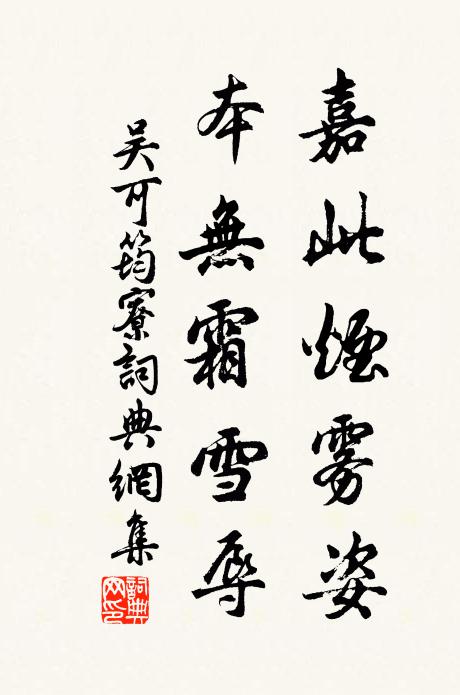 嘉此煙雾姿
本無霜雪辱
吴可筠寮詞典網集
詞典网印